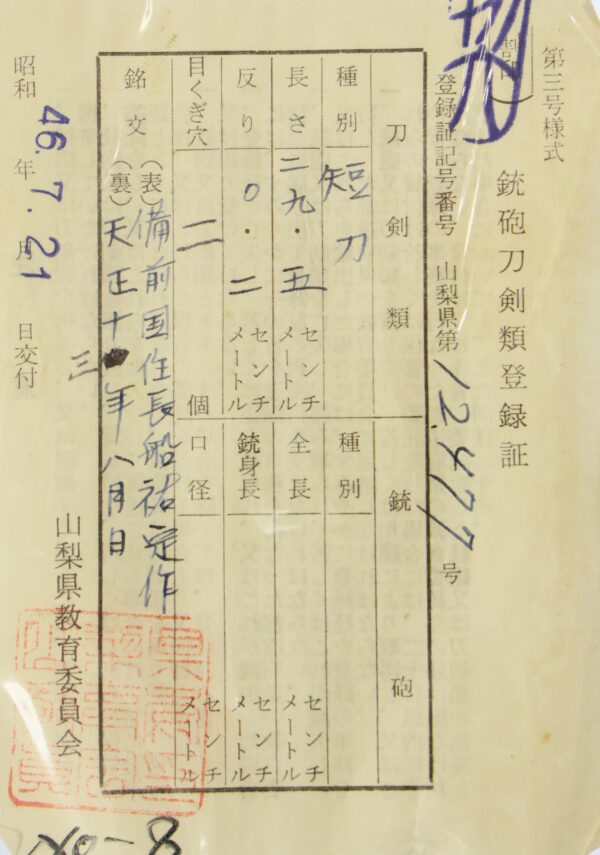 第三号様式
割印
銃砲刀剣類登録証
登録証記号番号 山梨県第12477号
刀剣類
種別 短刀
長さ 二九・五 センチメートル
反り 〇・二 センチメートル
目くぎ穴 二 個
銘文
(表) 備前国住長船祐定作
(裏) 天正十三年八月日
銃砲
種別
全長 センチメートル
銃身長 センチメートル
口径 センチメートル
昭和46年7月21日交付
山梨県教育委員会